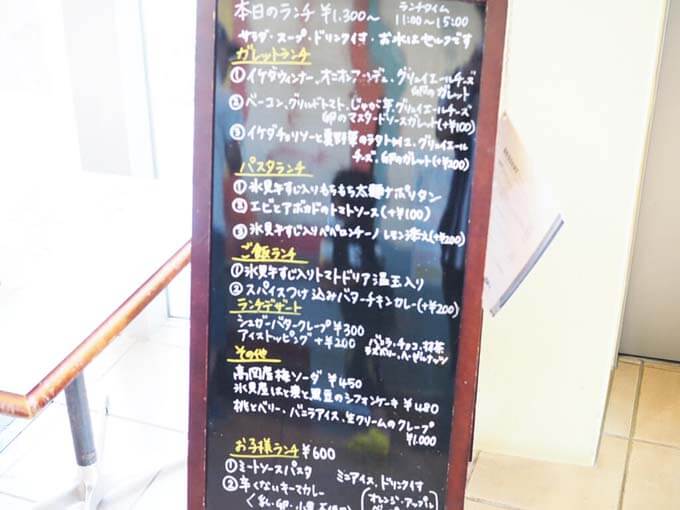 本日のランチ ¥1,300〜 ランチタイム
11:00〜15:00
サラダ・スープ・ドリンク付き・お水はセルフです
ガレットランチ
①イケダウィンナー、オニオンフォンデュ、グリュイエールチーズ
卵のガレット
②ベーコン、グリルドトマト、じゃが芋、グリュイエールチーズ
卵のマスタードソースガレット(+¥100)
③イケダチョリソーと夏野菜のラタトゥイユ、グリュイエール
チーズ、卵のガレット(+¥200)
パスタランチ
①氷見牛すじ入りもちもち太麺ナポリタン
②エビとアボカドのトマトソース(+¥100)
③氷見牛すじ入りペペロンチーノ レモン添え(+¥200)
ご飯ランチ
①氷見牛すじ入りトマトドリア温玉入り
②スパイスつけ込みバターチキンカレー(+¥200)
ランチデザート
シュガーバタークレープ ¥300
アイストッピング +¥200 バニラ・チョコ・抹茶
ラズベリー・ヘーゼルナッツ
その他
高岡産梅ソーダ ¥450
氷見産はと麦と黒豆のシフォンケーキ ¥480
桃とベリー・バニラアイス、生クリームのクレープ
¥1,000
お子様ランチ ¥600
①ミートソースパスタ ミニアイス、ドリンク付き
②辛くないキーマカレー (オレンジ・アップル